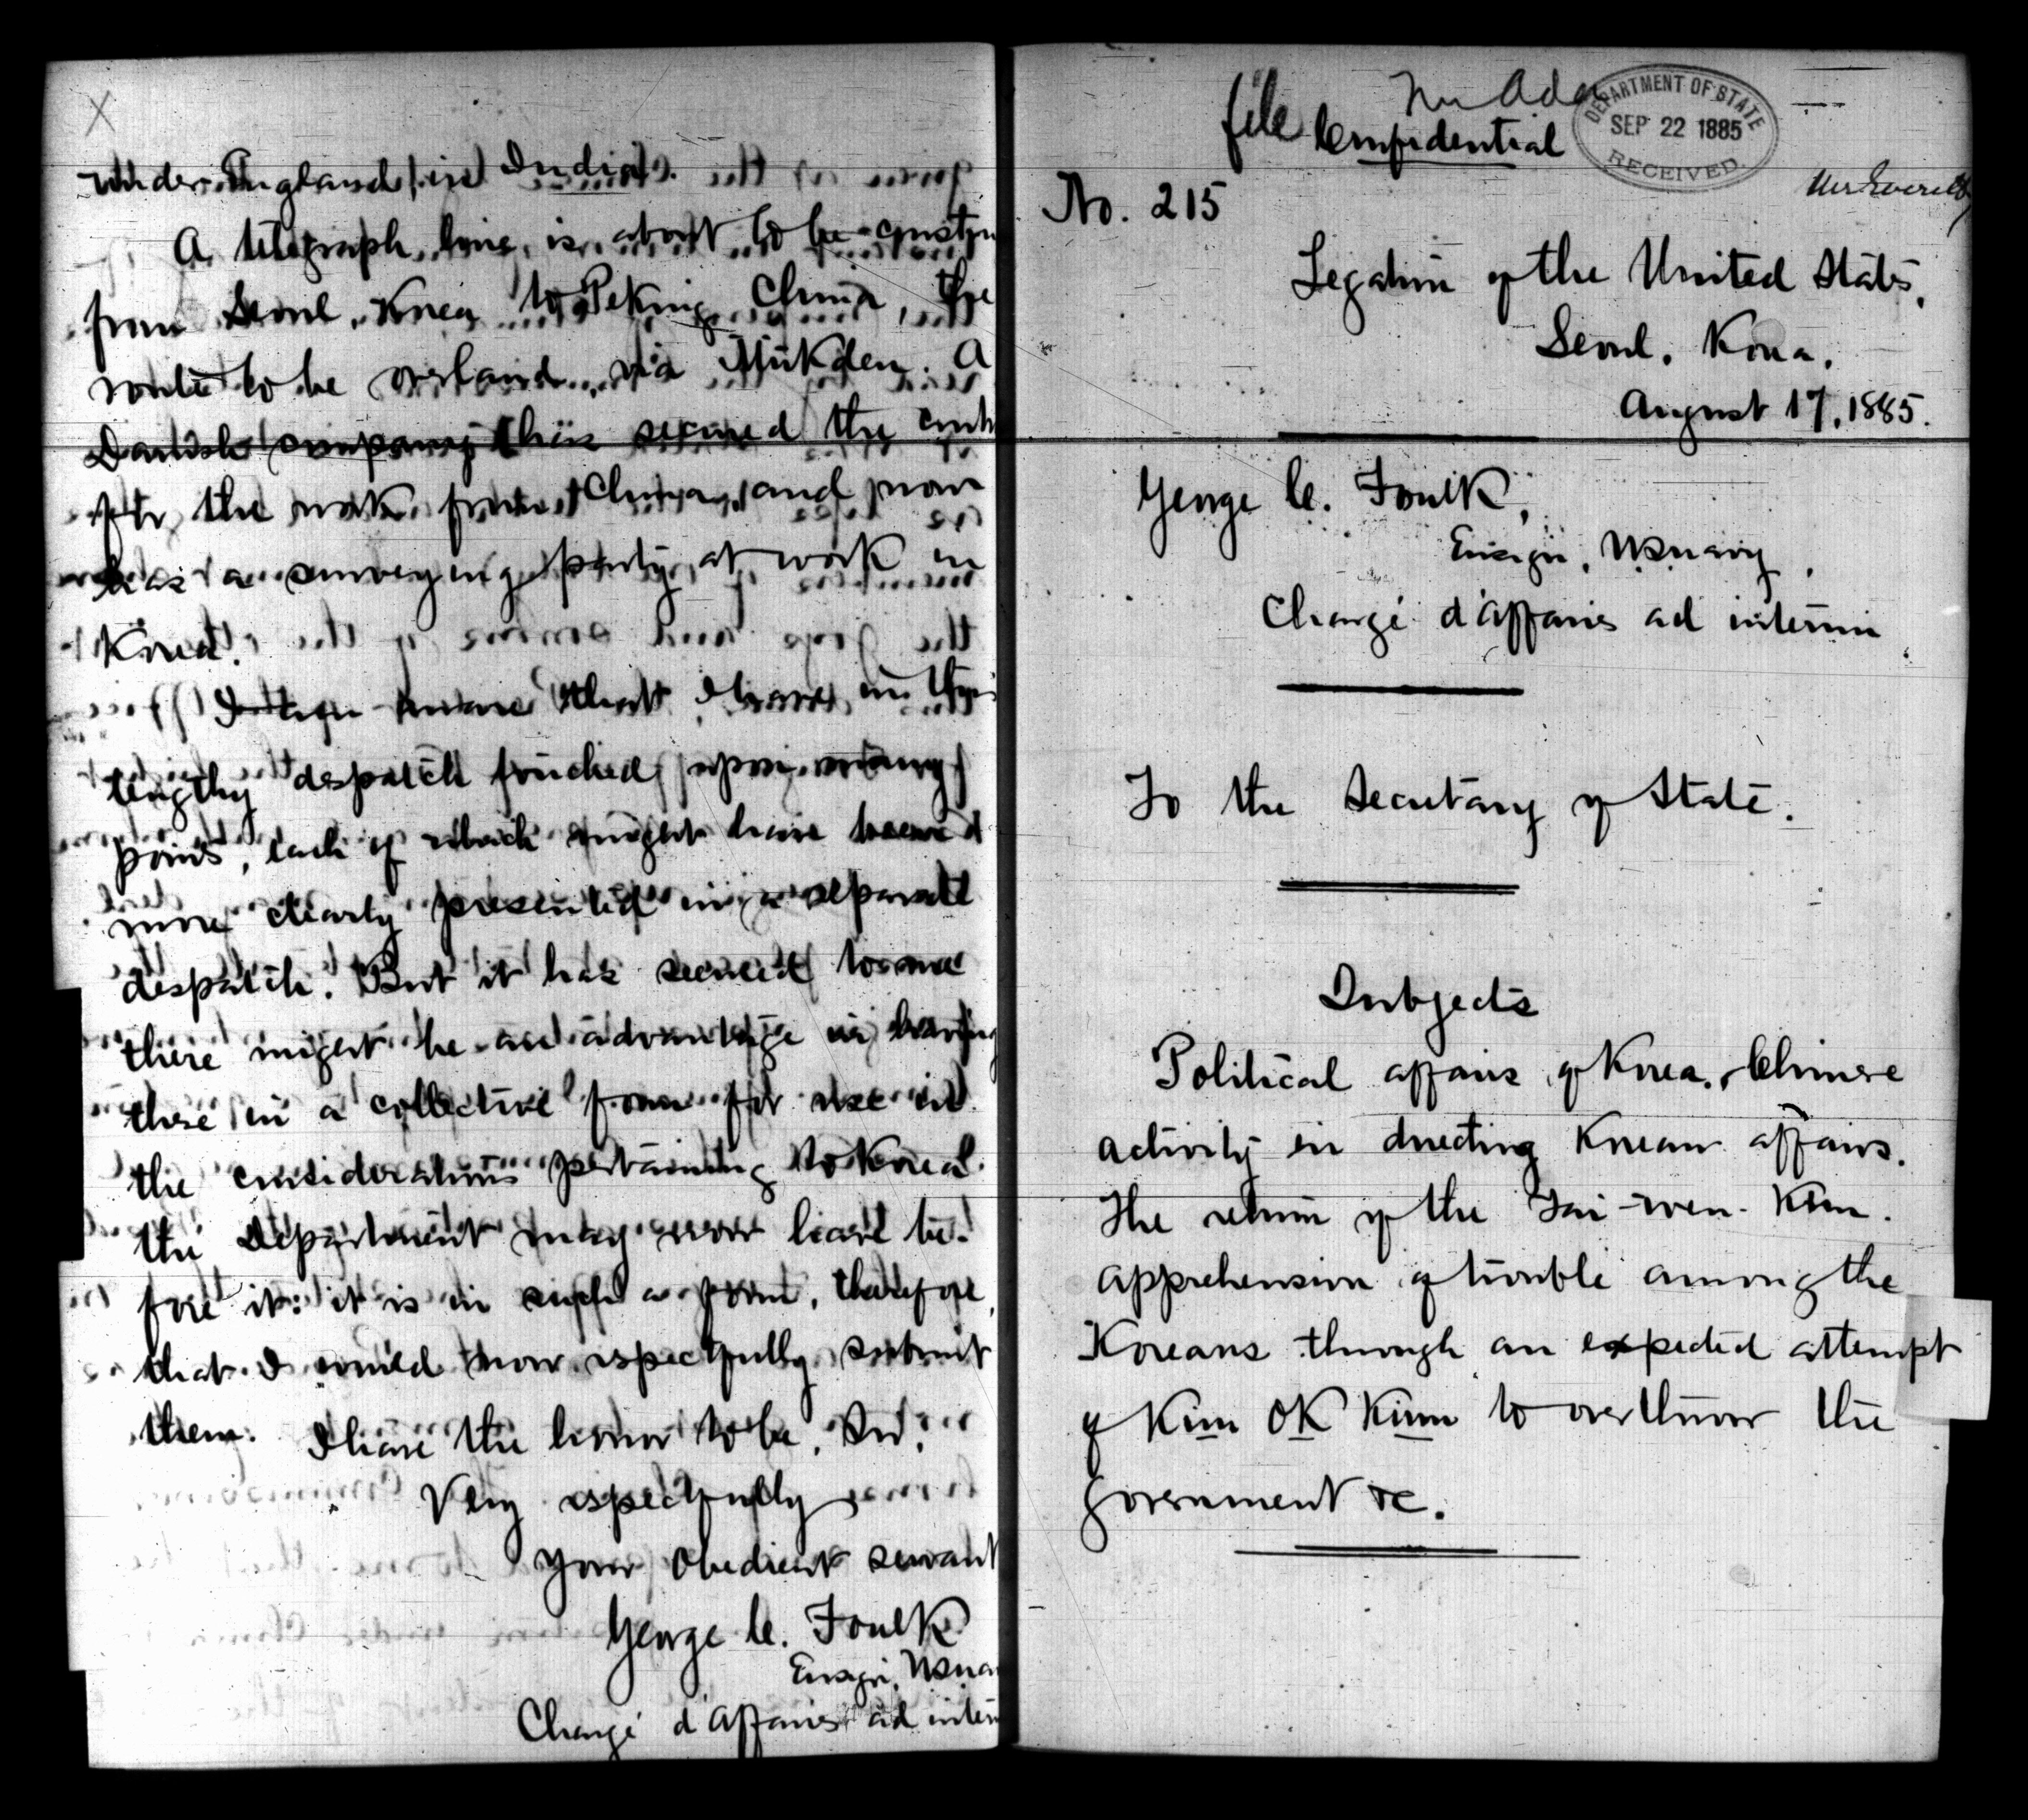 under England in India.
A telegraph line is about to be constru
from Seoul, Korea to Peking China, the
route to be overland, via Mukden. A
Danish company has secured the cont
for the work from China, and now
has a surveying party at work in
Korea.
I am aware that I have in this
lengthy despatch touched upon many
points, each of which might have been
more clearly presented in a separate
despatch. But it has seemed to me
there might be an advantage in having
these in a collective form for use in
the considerations pertaining to Korea
the Department may now have be-
fore it: it is in such a form, therefore,
that I would now respectfully submit
them. I have the honor to be, Sir,
Very respectfully
Your obedient servant
George C. Foulk
Ensign, USNa
Chargé d'affaires ad interi
Mr Adee
file Confidential
DEPARTMENT OF STATE
SEP 22 1885
RECEIVED
No. 215
Legation of the United States,
Seoul, Korea,
August 17, 1885.
George C. Foulk,
Ensign, USNavy,
Chargé d'affaires ad interim
To the Secretary of State.
Subjects
Political affairs of Korea. Chinese
activity in directing Korean affairs.
The return of the Tai-wen-Kun.
Apprehension of trouble among the
Koreans through an expected attempt
of Kim OK Kiun to overthrow the
Government &c.